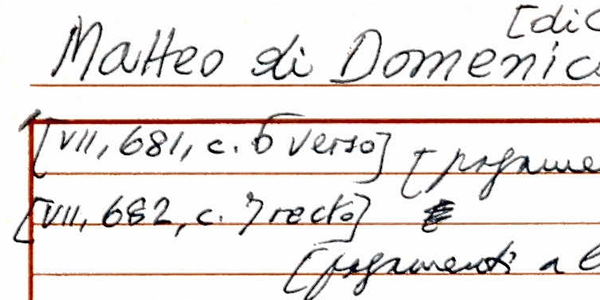 [di
Matteo di Domenic
[VII, 681, c. 6 verso] [pagame
[VII, 682, c. 7 recto]
[pagamenti a